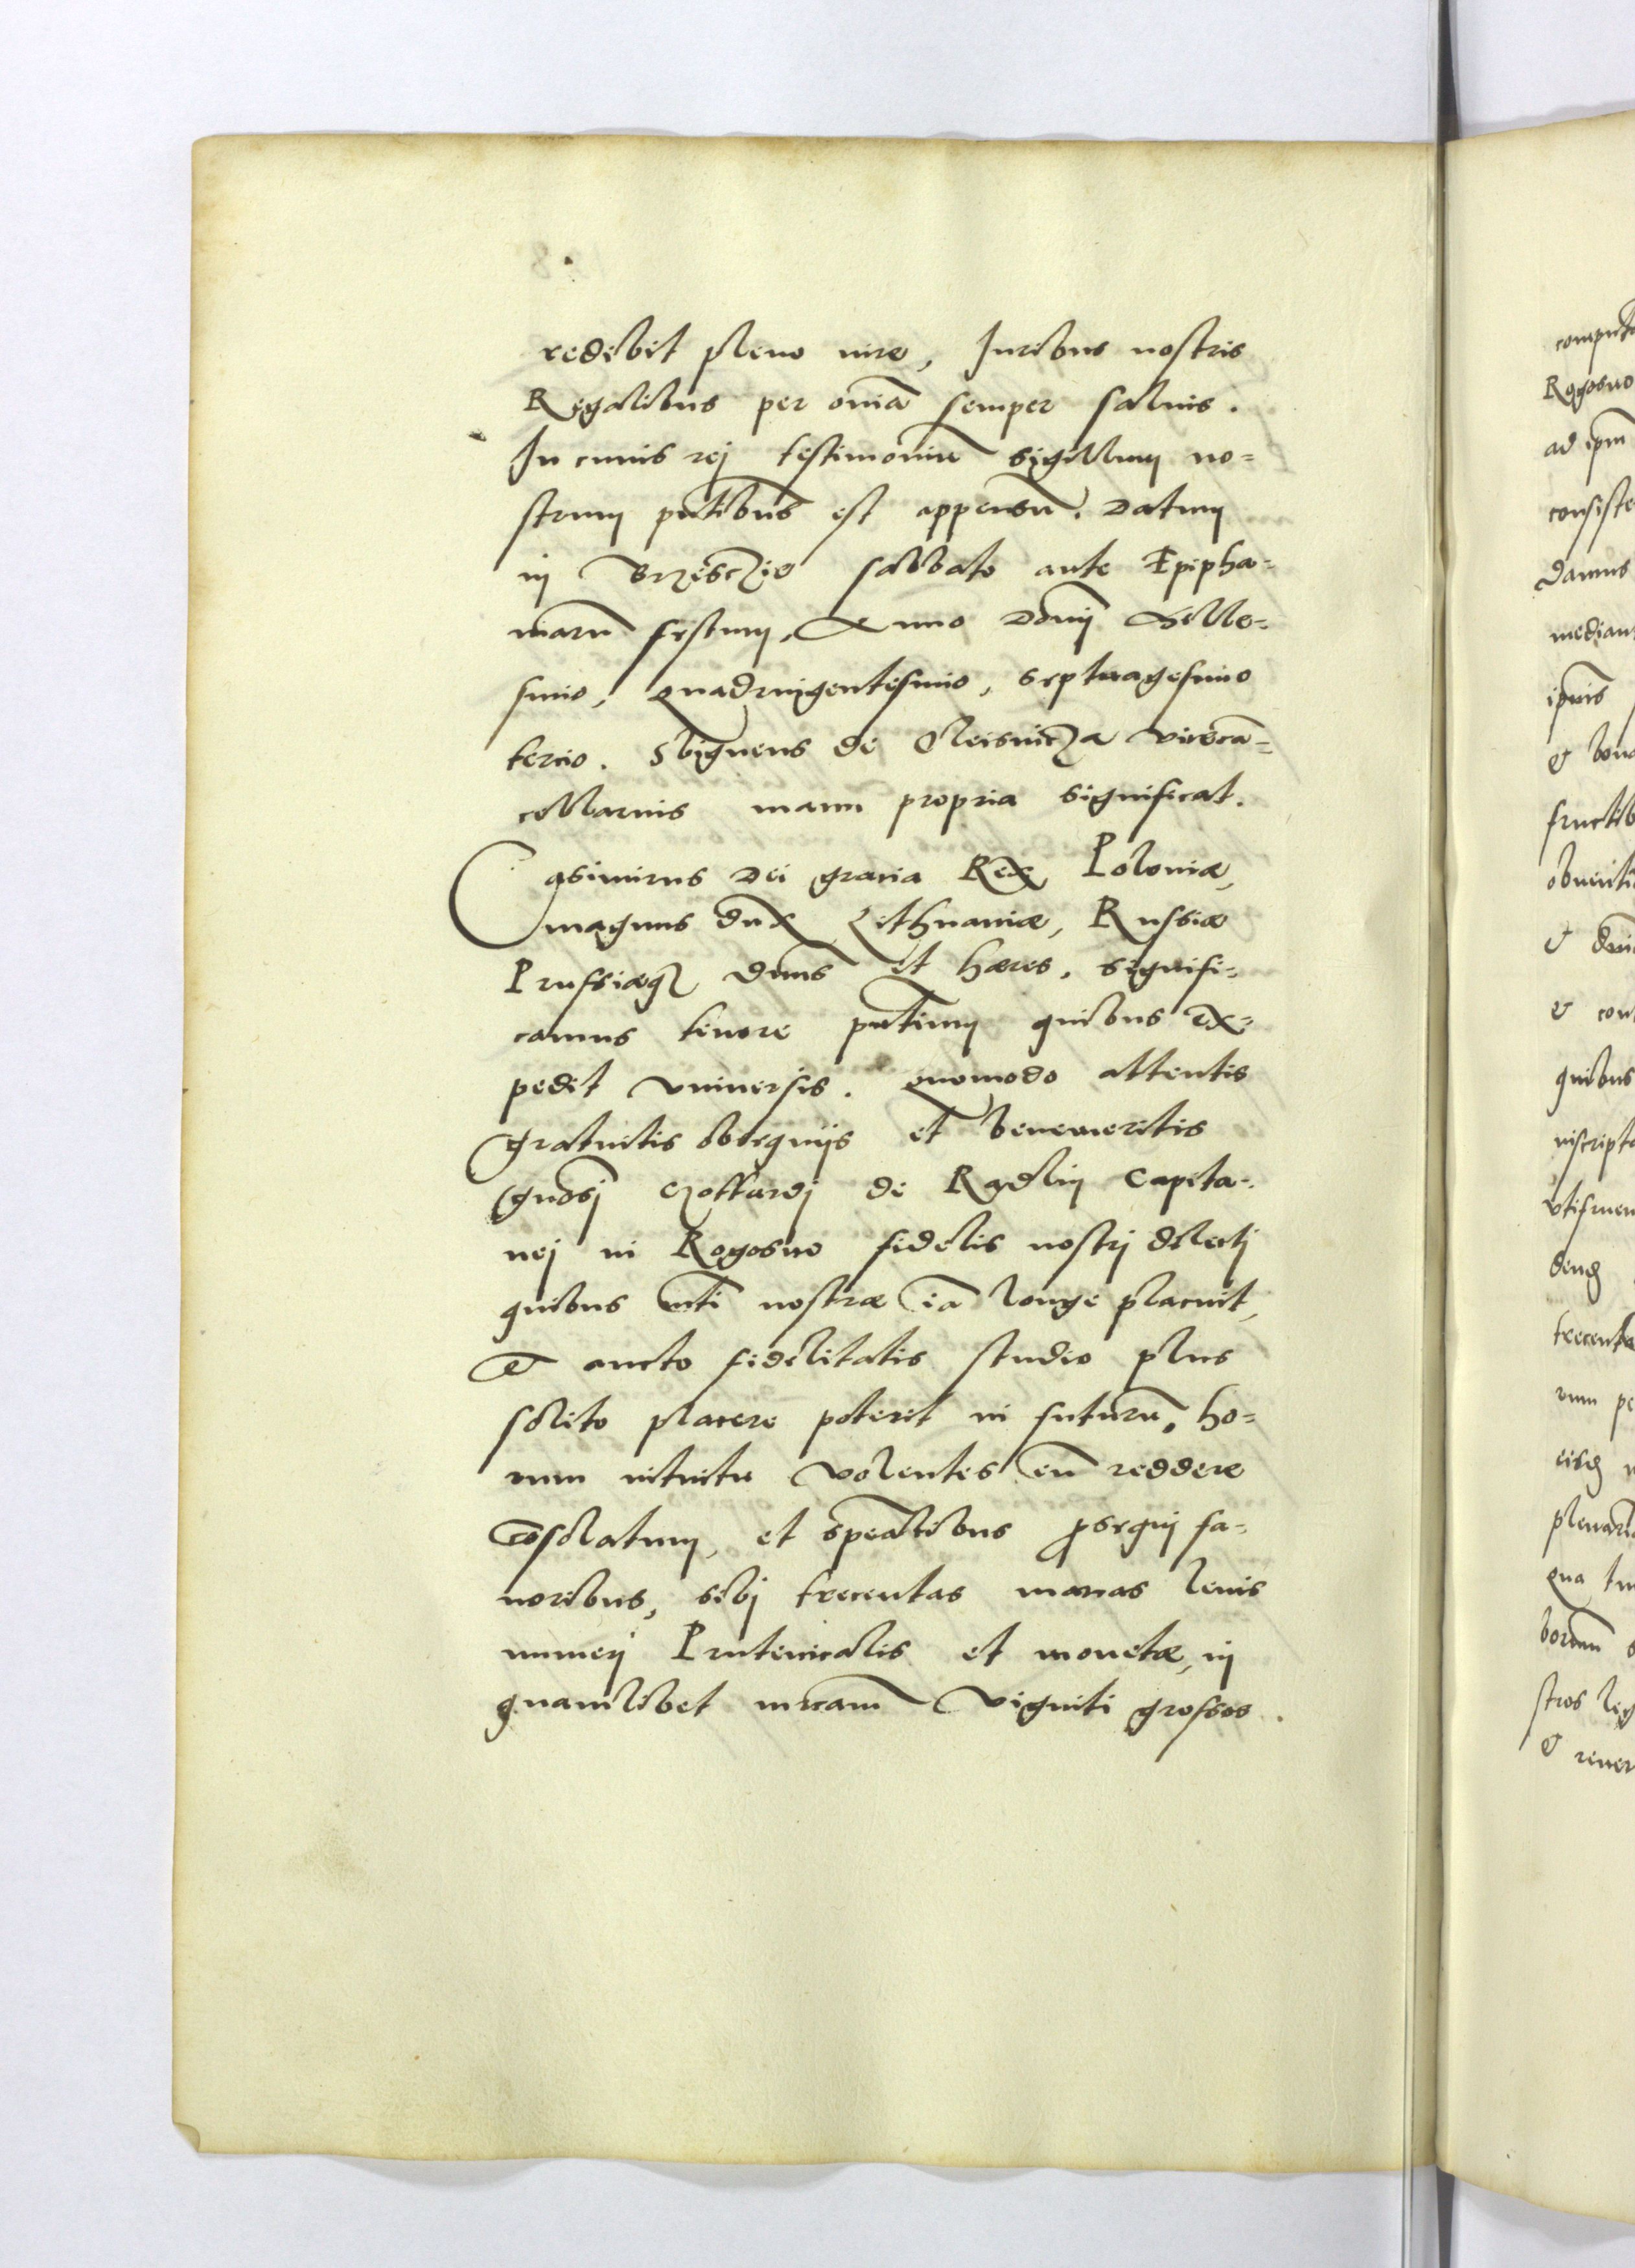 redibit pleno iure, Iuribus nostris
Regalibus per om̄ia semper saluis.
In cuius rej testimoniū sigillum no=
strum pn̄tibus est appensū. Datum
in Brzesczie sabbato ante Epipha=
niarū festum, Anno Dom̄ Mille=
simo, quadringentesimo, septuagesimo
tercio. Sbigneus de Oleisnicza vicecā=
cellarius manu propria significat.
Casimirus Dei gracia Rex Poloniæ,
magnus dux Lithuaniæ, Russiæ
Prussiæq₃ dn̄us et hæres, signifi=
camus tenore pn̄tium quibus ex=
pedit vniuersis. Quomodo attentis
gratuitis obsequijs et benemeritis
Gn̄osj de Radlin Capita=
nej in Rogosno fidelis nostrj dilectj
quibus nostræ iā longe placuit,
Et aucto fidelitatis studio plus
solito placere poterit in futurū, ho=
rum intuitu volentes eū reddere
cōsolatum, et sp̄ealibus ꝓsequj fa=
uoribus, sibj trecentas marcas leuis
numerj Prutenicalis et monetæ, in
quamlibet mrcam viginti grossos.
computā
Rogosno
ad ipm̄
consiste
Damus
median
ipsius
& bona
fructib
obuenti
&
& con
quibus
inscripta
vtifruen
denq₃
trecenta
rum pe
eisdē
plenari
qua
strosleg
& reuer